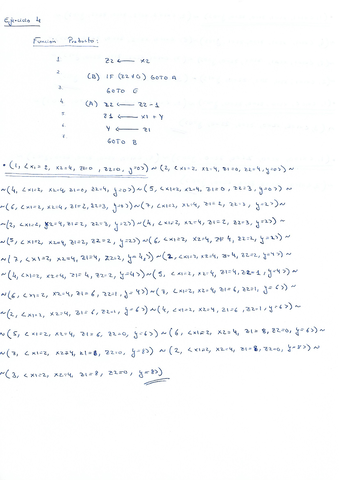 Ejercicio 4
Función Producto:
1 Z2 ← X2
2 (B) IF (Z2≠0) GOTO A
3 GOTO E
4 (A) Z2 ← Z2-1
5 Z1 ← X1 + Y
6 Y ← Z1
7 GOTO B
• (1, <X1=2, X2=4, Z1=0, Z2=0, Y=0>) ~ (2, <X1=2, X2=4, Z1=0, Z2=4, Y=0>) ~
~ (4, <X1=2, X2=4, Z1=0, Z2=4, Y=0>) ~ (5, <X1=2, X2=4, Z1=0, Z2=3, Y=0>) ~
~ (6, <X1=2, X2=4, Z1=2, Z2=3, Y=0>) ~ (7, <X1=2, X2=4, Z1=2, Z2=3, Y=2>) ~
~ (2, <X1=2, X2=4, Z1=2, Z2=3, Y=2>) ~ (4, <X1=2, X2=4, Z1=2, Z2=3, Y=2>) ~
~ (5, <X1=2, X2=4, Z1=2, Z2=2, Y=2>) ~ (6, <X1=2, X2=4, Z1=4, Z2=2, Y=2>) ~
~ (7, <X1=2, X2=4, Z1=4, Z2=2, Y=4>) ~ (2, <X1=2, X2=4, Z1=4, Z2=2, Y=4>) ~
~ (4, <X1=2, X2=4, Z1=4, Z2=2, Y=4>) ~ (5, <X1=2, X2=4, Z1=4, Z2=1, Y=4>) ~
~ (6, <X1=2, X2=4, Z1=6, Z2=1, Y=4>) ~ (7, <X1=2, X2=4, Z1=6, Z2=1, Y=6>) ~
~ (2, <X1=2, X2=4, Z1=6, Z2=1, Y=6>) ~ (4, <X1=2, X2=4, Z1=6, Z2=1, Y=6>) ~
~ (5, <X1=2, X2=4, Z1=6, Z2=0, Y=6>) ~ (6, <X1=2, X2=4, Z1=8, Z2=0, Y=6>) ~
~ (7, <X1=2, X2=4, Z1=8, Z2=0, Y=8>) ~ (2, <X1=2, X2=4, Z1=8, Z2=0, Y=8>) ~
~ (3, <X1=2, X2=4, Z1=8, Z2=0, Y=8>)